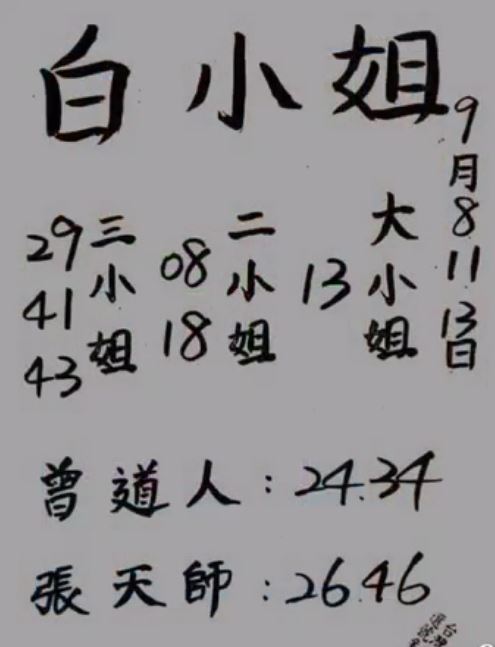 白小姐
9月8 11 13日
大小姐
13
二小姐
08
18
三小姐
29
41
43
曾道人:24.34
張天師:26.46